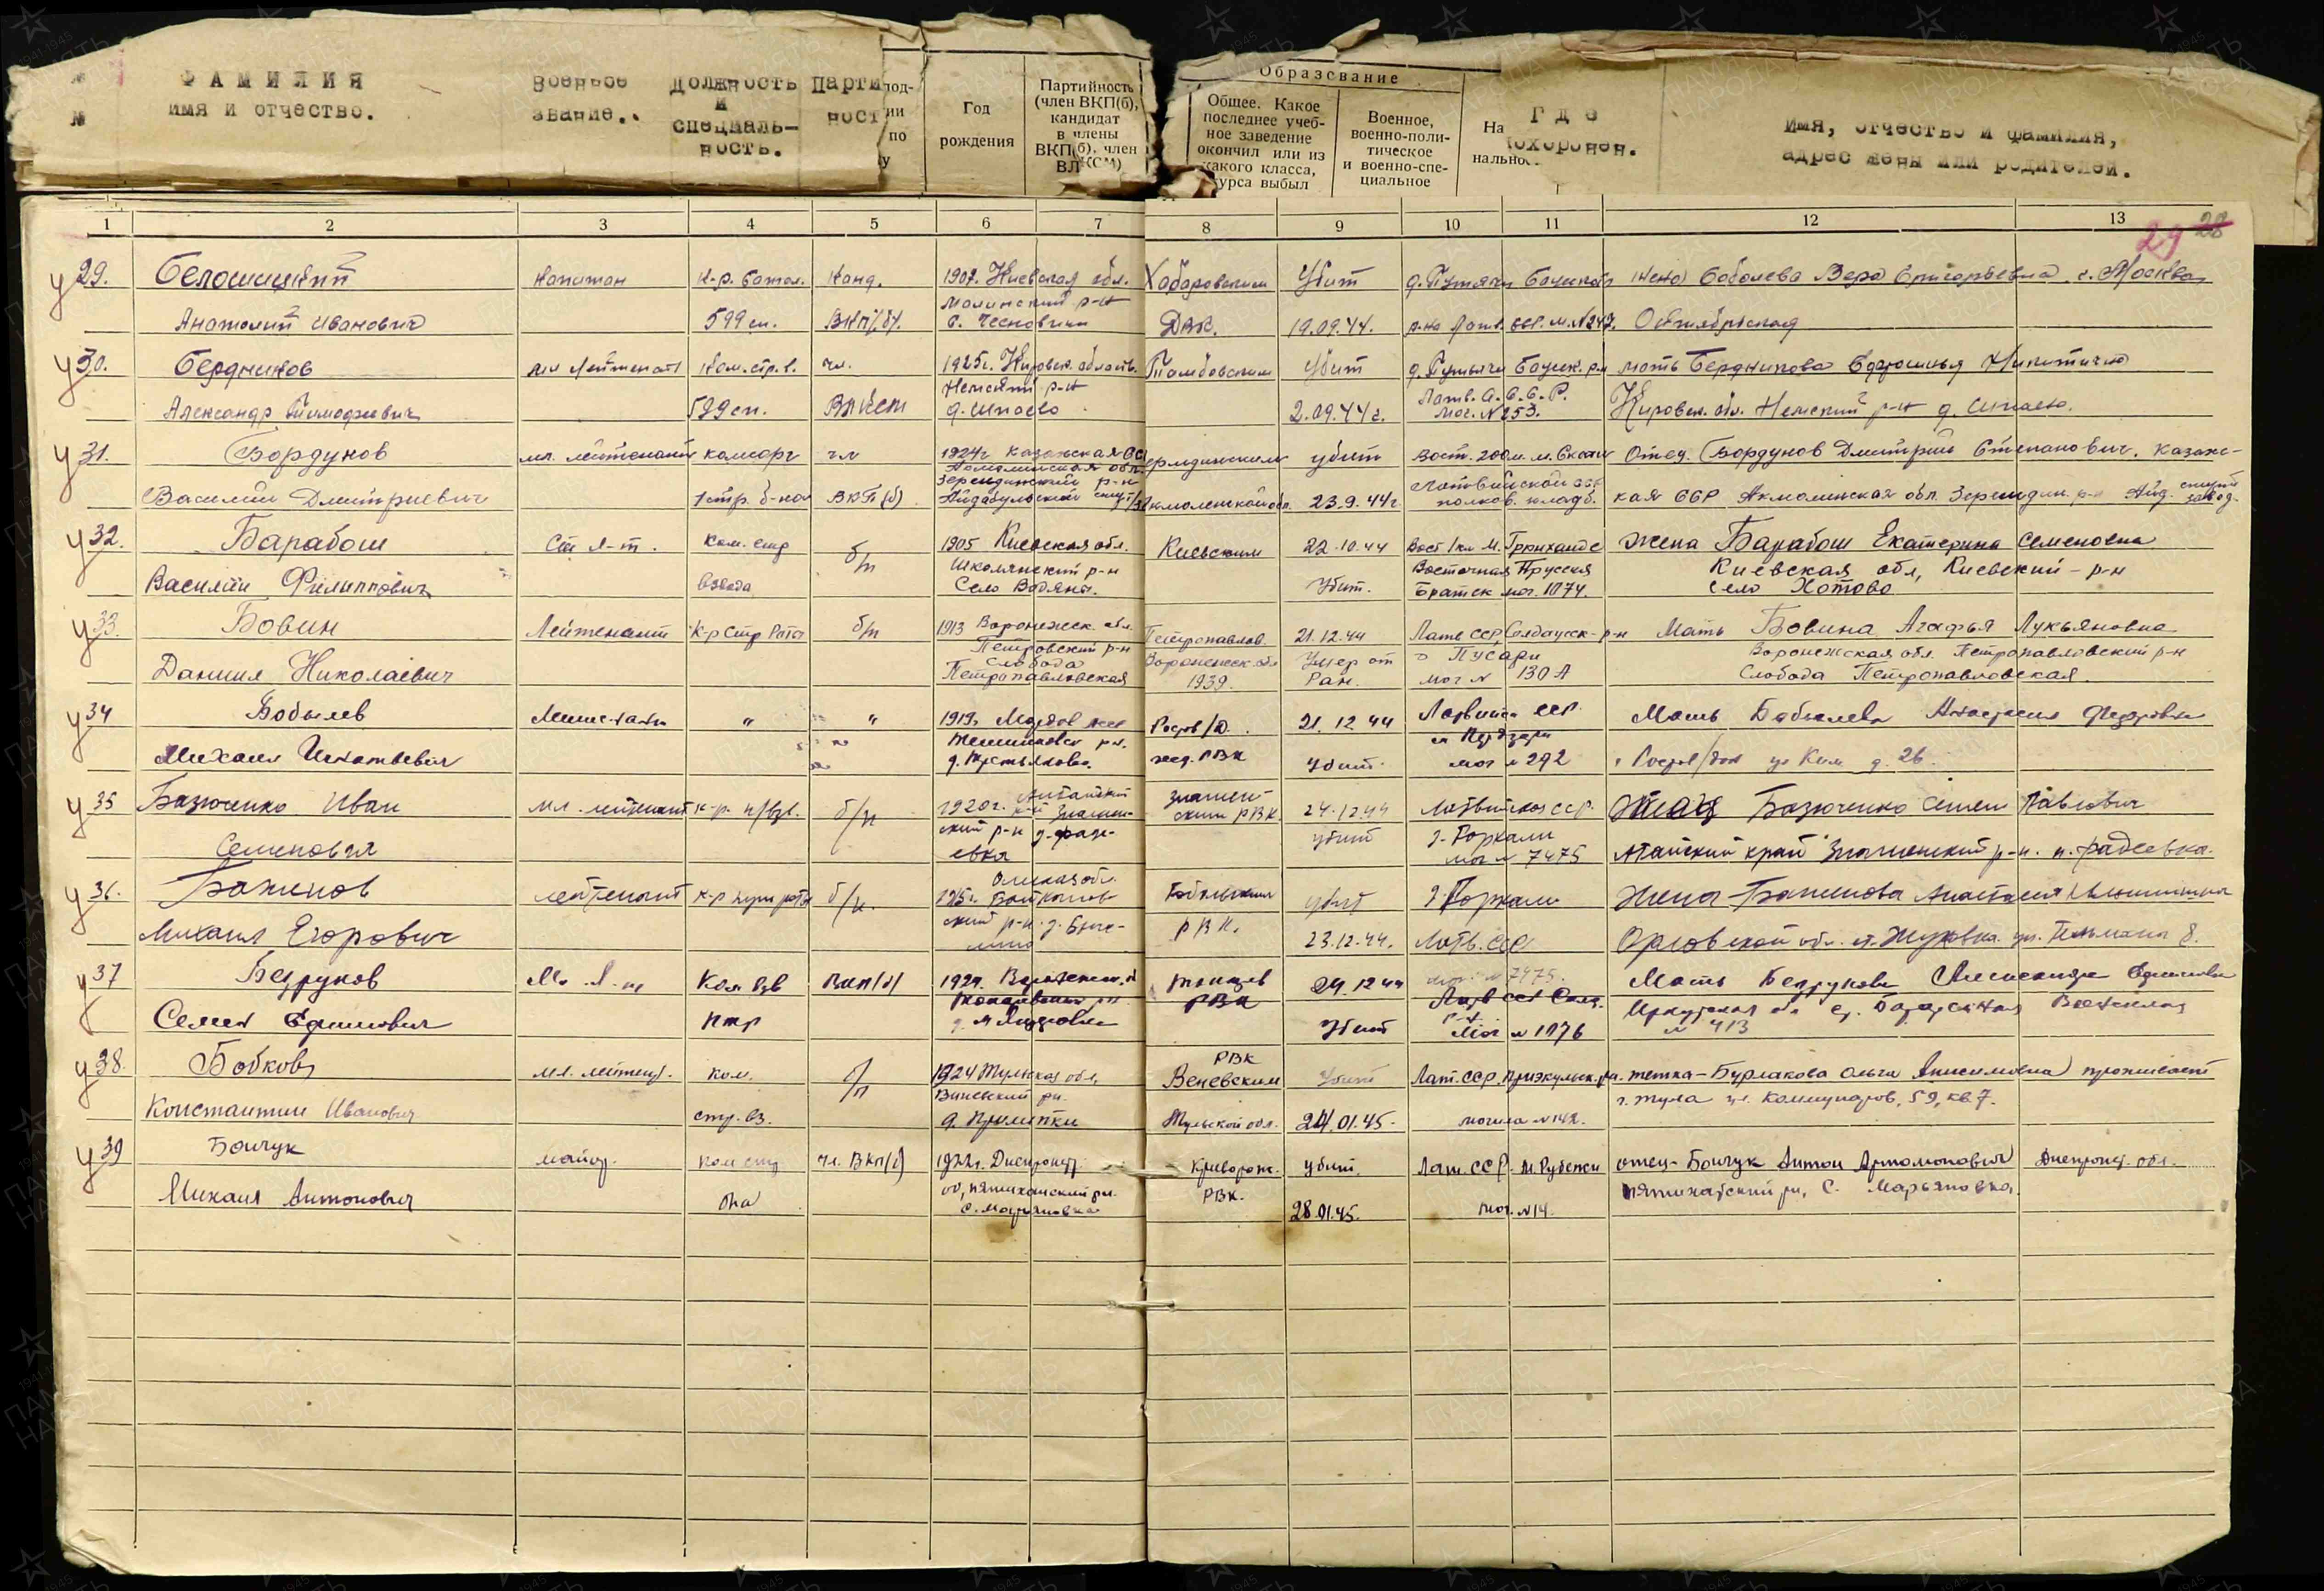 № ФАМИЛИЯ Военное Должность Парти под- Партийность Образование
№ имя и отчество. звание.. и ност ии Год (член ВКП(б), Общее. Какое Военное, На Где имя, отчество и фамилия,
специаль- по рождения кандидат последнее учеб- военно-поли- нально похоронен. адрес жены или родителей.
ность. у в члены ное заведение тическое
ВКП(б), член окончил или из и военно-спе-
ВЛКСМ) какого класса, циальное
курса выбыл
1 2 3 4 5 6 7 8 9 10 11 12 13
29 28
у29. Белошицкий Капитан К-р. батал. Канд. 1907. Киевская обл. Хабаровским Убит д. Путячи Бауский жена Соболева Вера Григорьевна г. Москва
Малинский р-н
Анатолий Иванович 599 сп. ВКП(б). с. Чесновики ДВК. 19.09.44. р-на Латв. ССР. м. №247. Октябрьская
у30. Бердников мл лейтенант Ком. стр. в. чл. 1925г. Кировск. область. Тамбовским Убит д. Путячи Бауск. р-н мать Бердникова Никитична
Немский р-н Латв. С.С.Р.
Александр Тимофеевич 599 сп. ВЛКСМ д. Шпаево 2.09.44г. Мог. №253. Кировск. обл. Немский р-н д. Шпаево.
у31. Бордунов мл. лейтенант комсорг чл 1924г Казахская ССР убит Вост. 200м. м. Отец. Бордунов Дмитрий Степанович. Казахс-
Акмолинская обл.
Зерендинский р-н Латвийской ССР
Василий Дмитриевич 1стр. б-на ВКП(б) Айдабульский спирт/з Акмоленской обл. 23.9.44г полков. кладб. кая ССР Акмолинская обл. Зерендин. р-н Айд. спирт завод.
у32. Барабош Ст л-т. Ком. стр б/п 1905 Киевская обл. Киевским 22.10.44 Вост 1км М. Грюнхайде Жена Барабош Екатерина Семеновна
Школянский р-н Восточная Пруссия Киевская обл, Киевский-р-н
Василий Филиппович взвода Село Водяны. Убит. Братск мог. 1074. Село Хотово
у33. Бовин Лейтенант К-р стр Роты б/п 1913 Воронежск. обл. Петропавлов. 21.12.44 Латв ССР, Салдусск-р-н Мать Бовина Агафья Лукьяновна
Петровский р-н Воронежск. обл Умер от Пусари Воронежская обл Петропавловский р-н
Слобода
Даниил Николаевич Петропавловская 1939. Ран. мог № 130 А Слобода Петропавловская.
у34 Бобылев " " 1919, Ростов/Д. 21.12.44 Латвийс ССР. Мать Бобылева Анастасия Федоровна
Михаил Игнатьевич жел. РВК Убит. мог № 292 г Ростов/Дон ул Ким д. 26.
у35 Базюченко Иван мл. лейтенант к-р. п/взв. б/п 1920г. Алтайский Знамен- 24.12.44 Латвийск ССР. Отец Базюченко Семен Павлович
край Знамен- ским РВК
ский р-н д. Фаде- убит д. Горкали
Семенович евка мог № 7475 Алтайский край Знаменский р-н. п. Фадеевка.
у36. Баженов лейтенант к-р пул роты б/п. Омская обл. Тобольским убит д. Горкали Жена-Баженова Анастасия
Михаил Егорович ский р-н РВК. 23.12.44. Латв. ССР Орловской обл. ст. Жуковка. ул. Тельмана 8.
у37 Бедруков Мл. Л-т Ком взв ВКП(б) 1924. Воронежск. о РВК 24.12 44 мог. № 7475. Мать Бедрукова Александра Ефимовна
Семен Ефимович птр Убит Мог № 1076 Иркутская обл № 413
у38. Бобков мл. лейтен. ком. б/п 1924 Тульская обл, РВК Веневским Убит Лат. ССР, Приэкульск. р-н. тетка-Бурлакова Ольга Анисимовна проживает
Веневский рн. г. Тула ул. Коммунаров, 59, кв. 7.
Константин Иванович стр. вз. Тульской обл. 24.01.45. могила №142.
у39 Бончук майор. ком стр чл. ВКП(б) 1922г. Днепропет. Криворож. убит. Лат. ССР. м. Рубежи отец-Бончук Антон Артамонович Днепропет. обл.
об, пятихатский рн. РВК. пятихатский рн, с. Марьяновка.
Михаил Антонович бна с. Марьяновка 28.01.45. мог. №14.